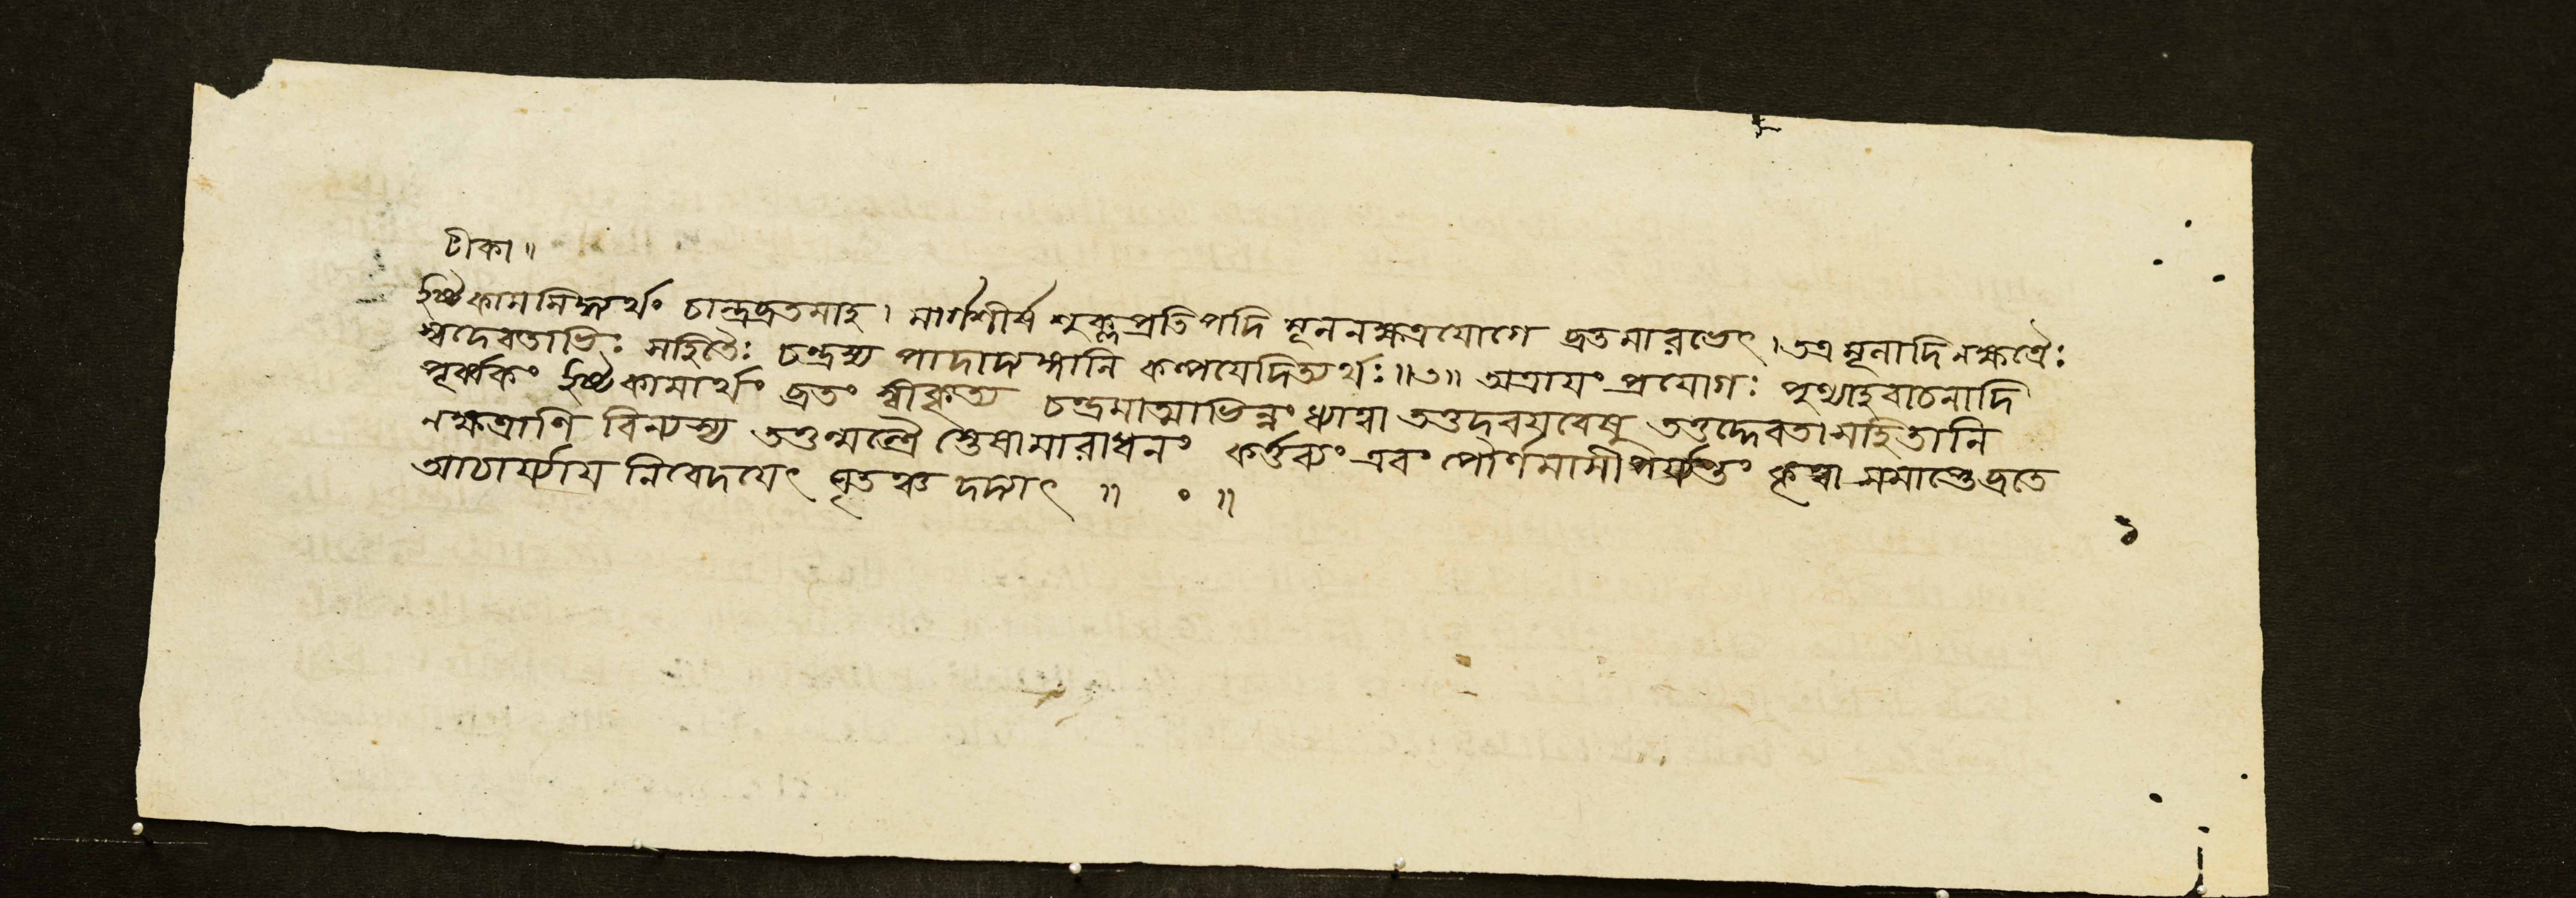 টীকা॥
ইষ্টকামসিদ্ধ্যর্থং চান্দ্রব্রতমাহ। মার্গশীর্ষ শুক্লপ্রতিপদি মূলনক্ষত্রযোগে ব্রতমারভেৎ। তত্র মূলাদিনক্ষত্রৈঃ
স্বদেবতাভিঃ সহিতৈঃ চন্দ্রস্য পাদাদ্যঙ্গানি কল্পযেদিত্যর্থঃ॥৩॥ অত্রাযং প্রযোগঃ পুণ্যাহবাচনাদি
পূর্ব্বকং ইষ্টকামার্থং ব্রতং স্বীকৃত্য চন্দ্রমাত্মাভিন্নং ধ্যাত্বা তত্তদবযবেষু তত্তদ্দেবতাসহিতানি
নক্ষত্রাণি বিন্যস্য তত্তন্মন্ত্রৈ স্তেষামারাধনং কর্ত্তব্যং এবং পৌর্ণমাসীপর্য্যন্তং কৃত্বা সমাপ্তেব্রতে
আচার্য্যায নিবেদযেৎ ঘৃতঞ্চ দদ্যাৎ ॥ ॰ ॥
১